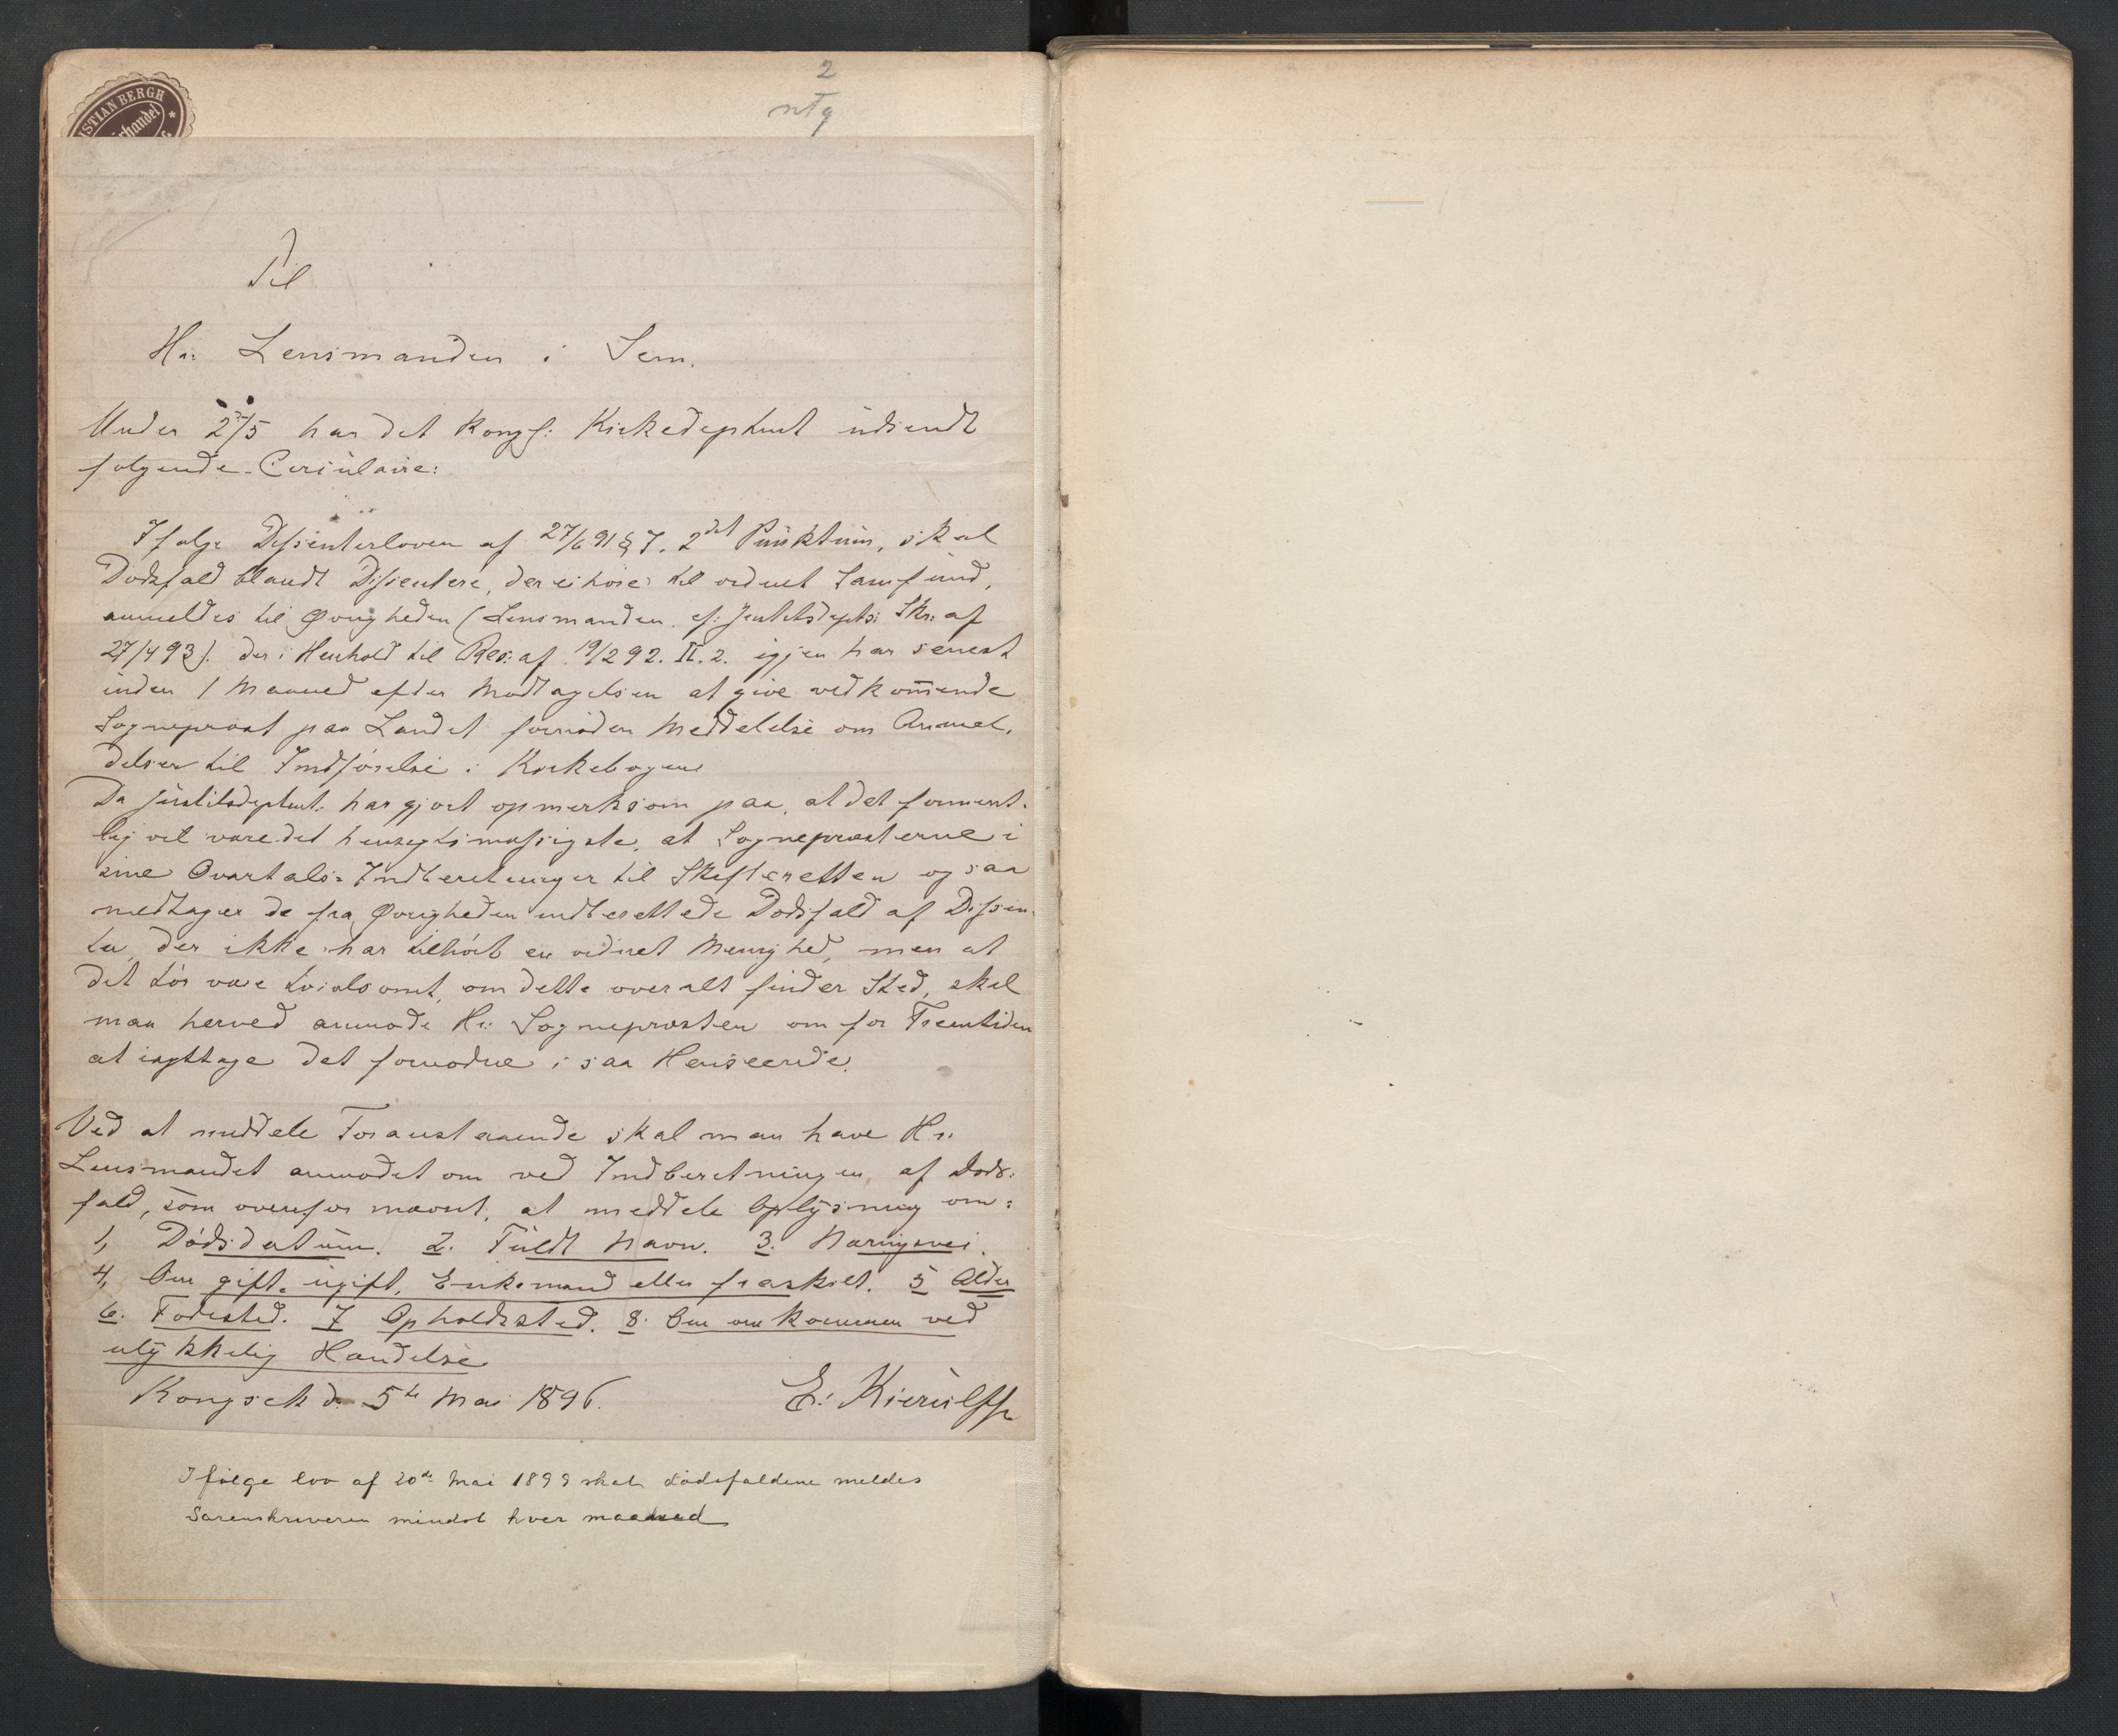 STIAN BERGH
rhandel
2
Til
Hr: Lensmanden i Sem.
Under 2/5 har det kongl: Kirkedeptmt udsendt
følgende Cirkulaire:
Ifølge Dissenterloven af 27/6 91 § 7. 2det Punktum, skal
Dødsfald blandt Dissentere, der ei hører til ordnet Samfund,
anmeldes til Øvrigheden (Lensmanden. cf: Justitsdepts: Skr: af
27/4 93). der i Henhold til Res: af 19/2 92. II. 2. igjen har senest
inden 1 Maaned efter Modtagelsen at give vedkommende
Sognepræst paa Landet fornøden Meddelelse om Anmel,
delser til Indførelse i Kirkebogen
Da Justitsdeptmt: har gjort opmerksom paa, at det forment.
lig vil være det hensigtsmæssigste, at Sognepræsterne i
sine Qvartals-Indberetninger til Skifteretten ogsaa
medtager de fra Øvrigheden indberettede Dødsfald af Dissen-
ter, der ikke har tilhørt en ordnet Menighed, men at
det tør være tvivlsomt, om dette overalt finder Sted, skal
man herved anmode Hr: Sognepræsten om for Fremtiden
at iagttage det fornødne i saa Henseende.
Ved at meddele Foranstaaende skal man have Hr:
Lensmandet anmodet om ved Indberetningen af Døds:
fald, som ovenfor nævnt, at meddele Oplysning om:
1, Dødsdatum. 2. Fuldt Navn. 3. Næringsvei.
4, Om gift, ugift, Enkemand eller fraskilt. 5 Alder
6. Fødested. 7 Opholdssted. 8. Om omkommen ved
ulykkelig Hændelse
Kongsek d. 5te Mai 1896. E: Kierulff
Ifølge lov af 20de Mai 1899 skal dødsfaldene meldes
Sorenskriveren mindst hver maaned